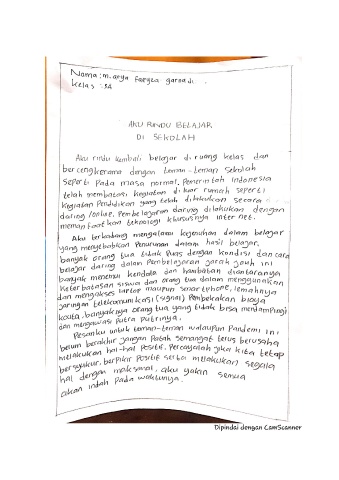 Nama: m. arya Faeyza garnadi.
Kelas : 3A
AKU RINDU BELAJAR
DI SEKOLAH
Aku rindu kembali belajar di ruang kelas dan
bercengkerama dengan teman-teman sekolah
seperti pada masa normal. Pemerintah indonesia
telah membatasi kegiatan di luar rumah seperti
kegiatan Pendidikan yang telah dilakukan secara
daring/online. Pembelajaran daring dilakukan dengan
memanfaatkan teknologi khususnya internet.
Aku terkadang mengalami kejenuhan dalam belajar
yang menyebabkan Penurunan dalam hasil belajar.
banyak orang tua tidak Puas dengan kondisi dan cara
belajar daring dalam Pembelajaran jarak jauh ini
banyak menemui kendala dan hambatan diantaranya
keterbatasan siswa dan orang tua dalam menggunakan
dan mengakses laptop maupun smartphone, lemahnya
jaringan telekomunikasi (signal) Pembekalan biaya
kouta, banyaknya orang tua yang tidak bisa mendampingi
dan mengawasi putra putrinya.
Pesanku untuk teman-teman walaupun Pandemi ini
belum berakhir jangan Patah semangat terus berusaha
melakukan hal-hal Positif. Percayalah jika kita tetap
bersyukur, berpikir Positif serta melakukan segala
hal dengan maksimal, aku yakin semua
akan indah Pada waktunya.
Dipindai dengan CamScanner